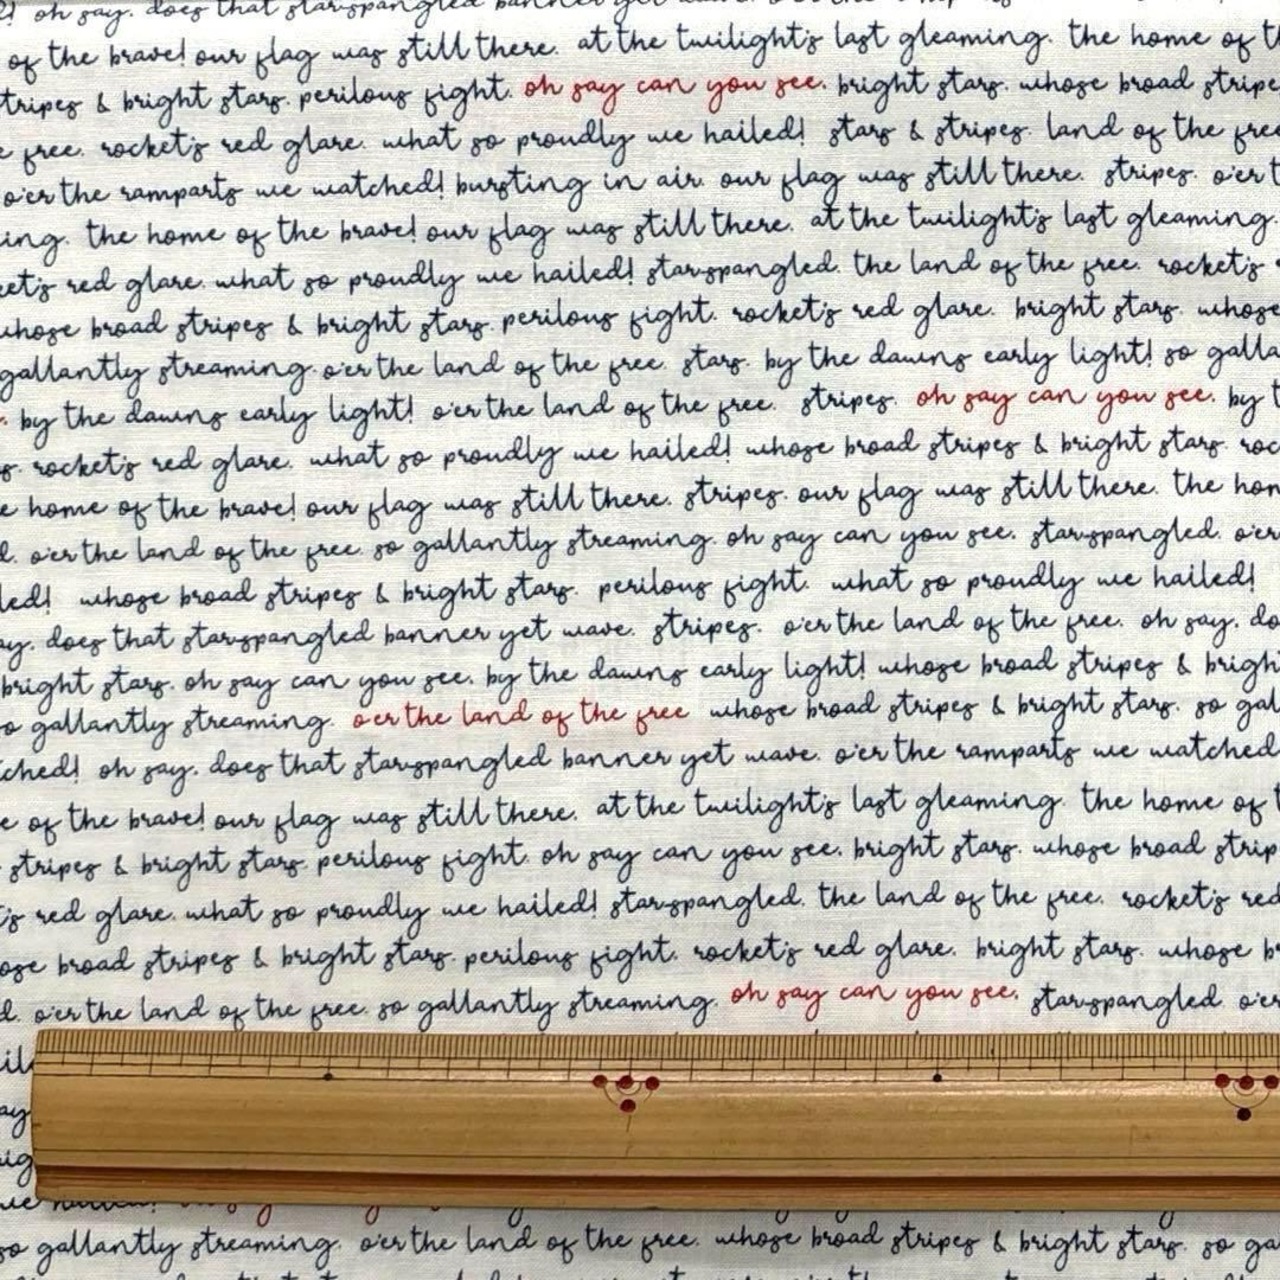 oh say. does that star-spangled banner yet wave.
of the brave! our flag was still there. at the twilight's last gleaming. the home of
& bright stars. perilous fight. oh say can you see. bright stars. whose broad
free. rocket's red glare. what so proudly we hailed! stars & stripes. land of the
o'er the ramparts we watched! bursting in air. our flag was still there. stripes. o'er
the home of the brave! our flag was still there. at the twilight's last gleaming.
red glare. what so proudly we hailed! star-spangled. the land of the free. rocket's
whose broad stripes & bright stars. perilous fight. rocket's red glare. bright stars. whose
gallantly streaming. o'er the land of the free. stars. by the dawns early light! so
by the dawns early light! o'er the land of the free. stripes. oh say can you see. by
rocket's red glare. what so proudly we hailed! whose broad stripes & bright stars.
home of the brave! our flag was still there. stripes. our flag was still there. the
o'er the land of the free. so gallantly streaming. oh say can you see. star-spangled. o'er
whose broad stripes & bright stars. perilous fight. what so proudly we hailed!
does that star-spangled banner yet wave. stripes. o'er the land of the free. oh say.
bright stars. oh say can you see. by the dawns early light! whose broad stripes &
so gallantly streaming. o'er the land of the free whose broad stripes & bright stars. so
oh say. does that star-spangled banner yet wave. o'er the ramparts we watched
of the brave! our flag was still there. at the twilight's last gleaming. the home of
stripes & bright stars. perilous fight. oh say can you see. bright stars. whose broad
red glare. what so proudly we hailed! star-spangled. the land of the free. rocket's red
broad stripes & bright stars. perilous fight. rocket's red glare. bright stars. whose
o'er the land of the free. so gallantly streaming. oh say can you see. star-spangled. o'er
so gallantly streaming. o'er the land of the free. whose broad stripes & bright stars. so